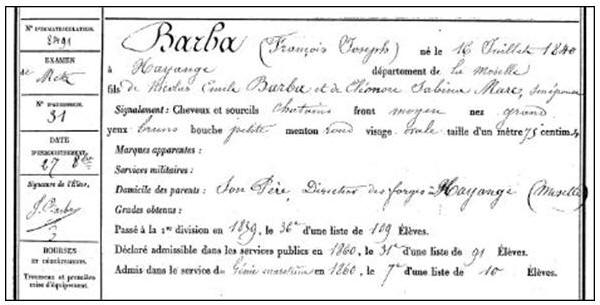 N° D'IMMATRICULATION.
8491
EXAMEN
Metz
N° D'ADMISSION.
31
DATE
D'ENREGISTREMENT.
27 8bre
Signature de l'Élève.
J. Barba
BOURSES
ET DÉGRÈVEMENTS.
Trousseau et première
mise d'équipement.
Barba (François Joseph) né le 16 Juillet 1840
à Hayange département de la Moselle
fils de Nicolas Emile Barba et de Eléonore Sabine Marc,
Signalement : Cheveux et sourcils chatains front moyen nez grand
yeux bruns bouche petite menton rond visage ovale taille d'un mètre 75 centim.
Marques apparentes :
Services militaires :
Domicile des parents : Son Père, Directeur des forges à Hayange (Moselle)
Grades obtenus :
Passé à la 1re division en 1859, le 36e d'une liste de 109 Élèves.
Déclaré admissible dans les services publics en 1860, le 31e d'une liste de 91 Élèves.
Admis dans le service du Génie maritime en 1860, le 7e d'une liste de 10 Élèves.